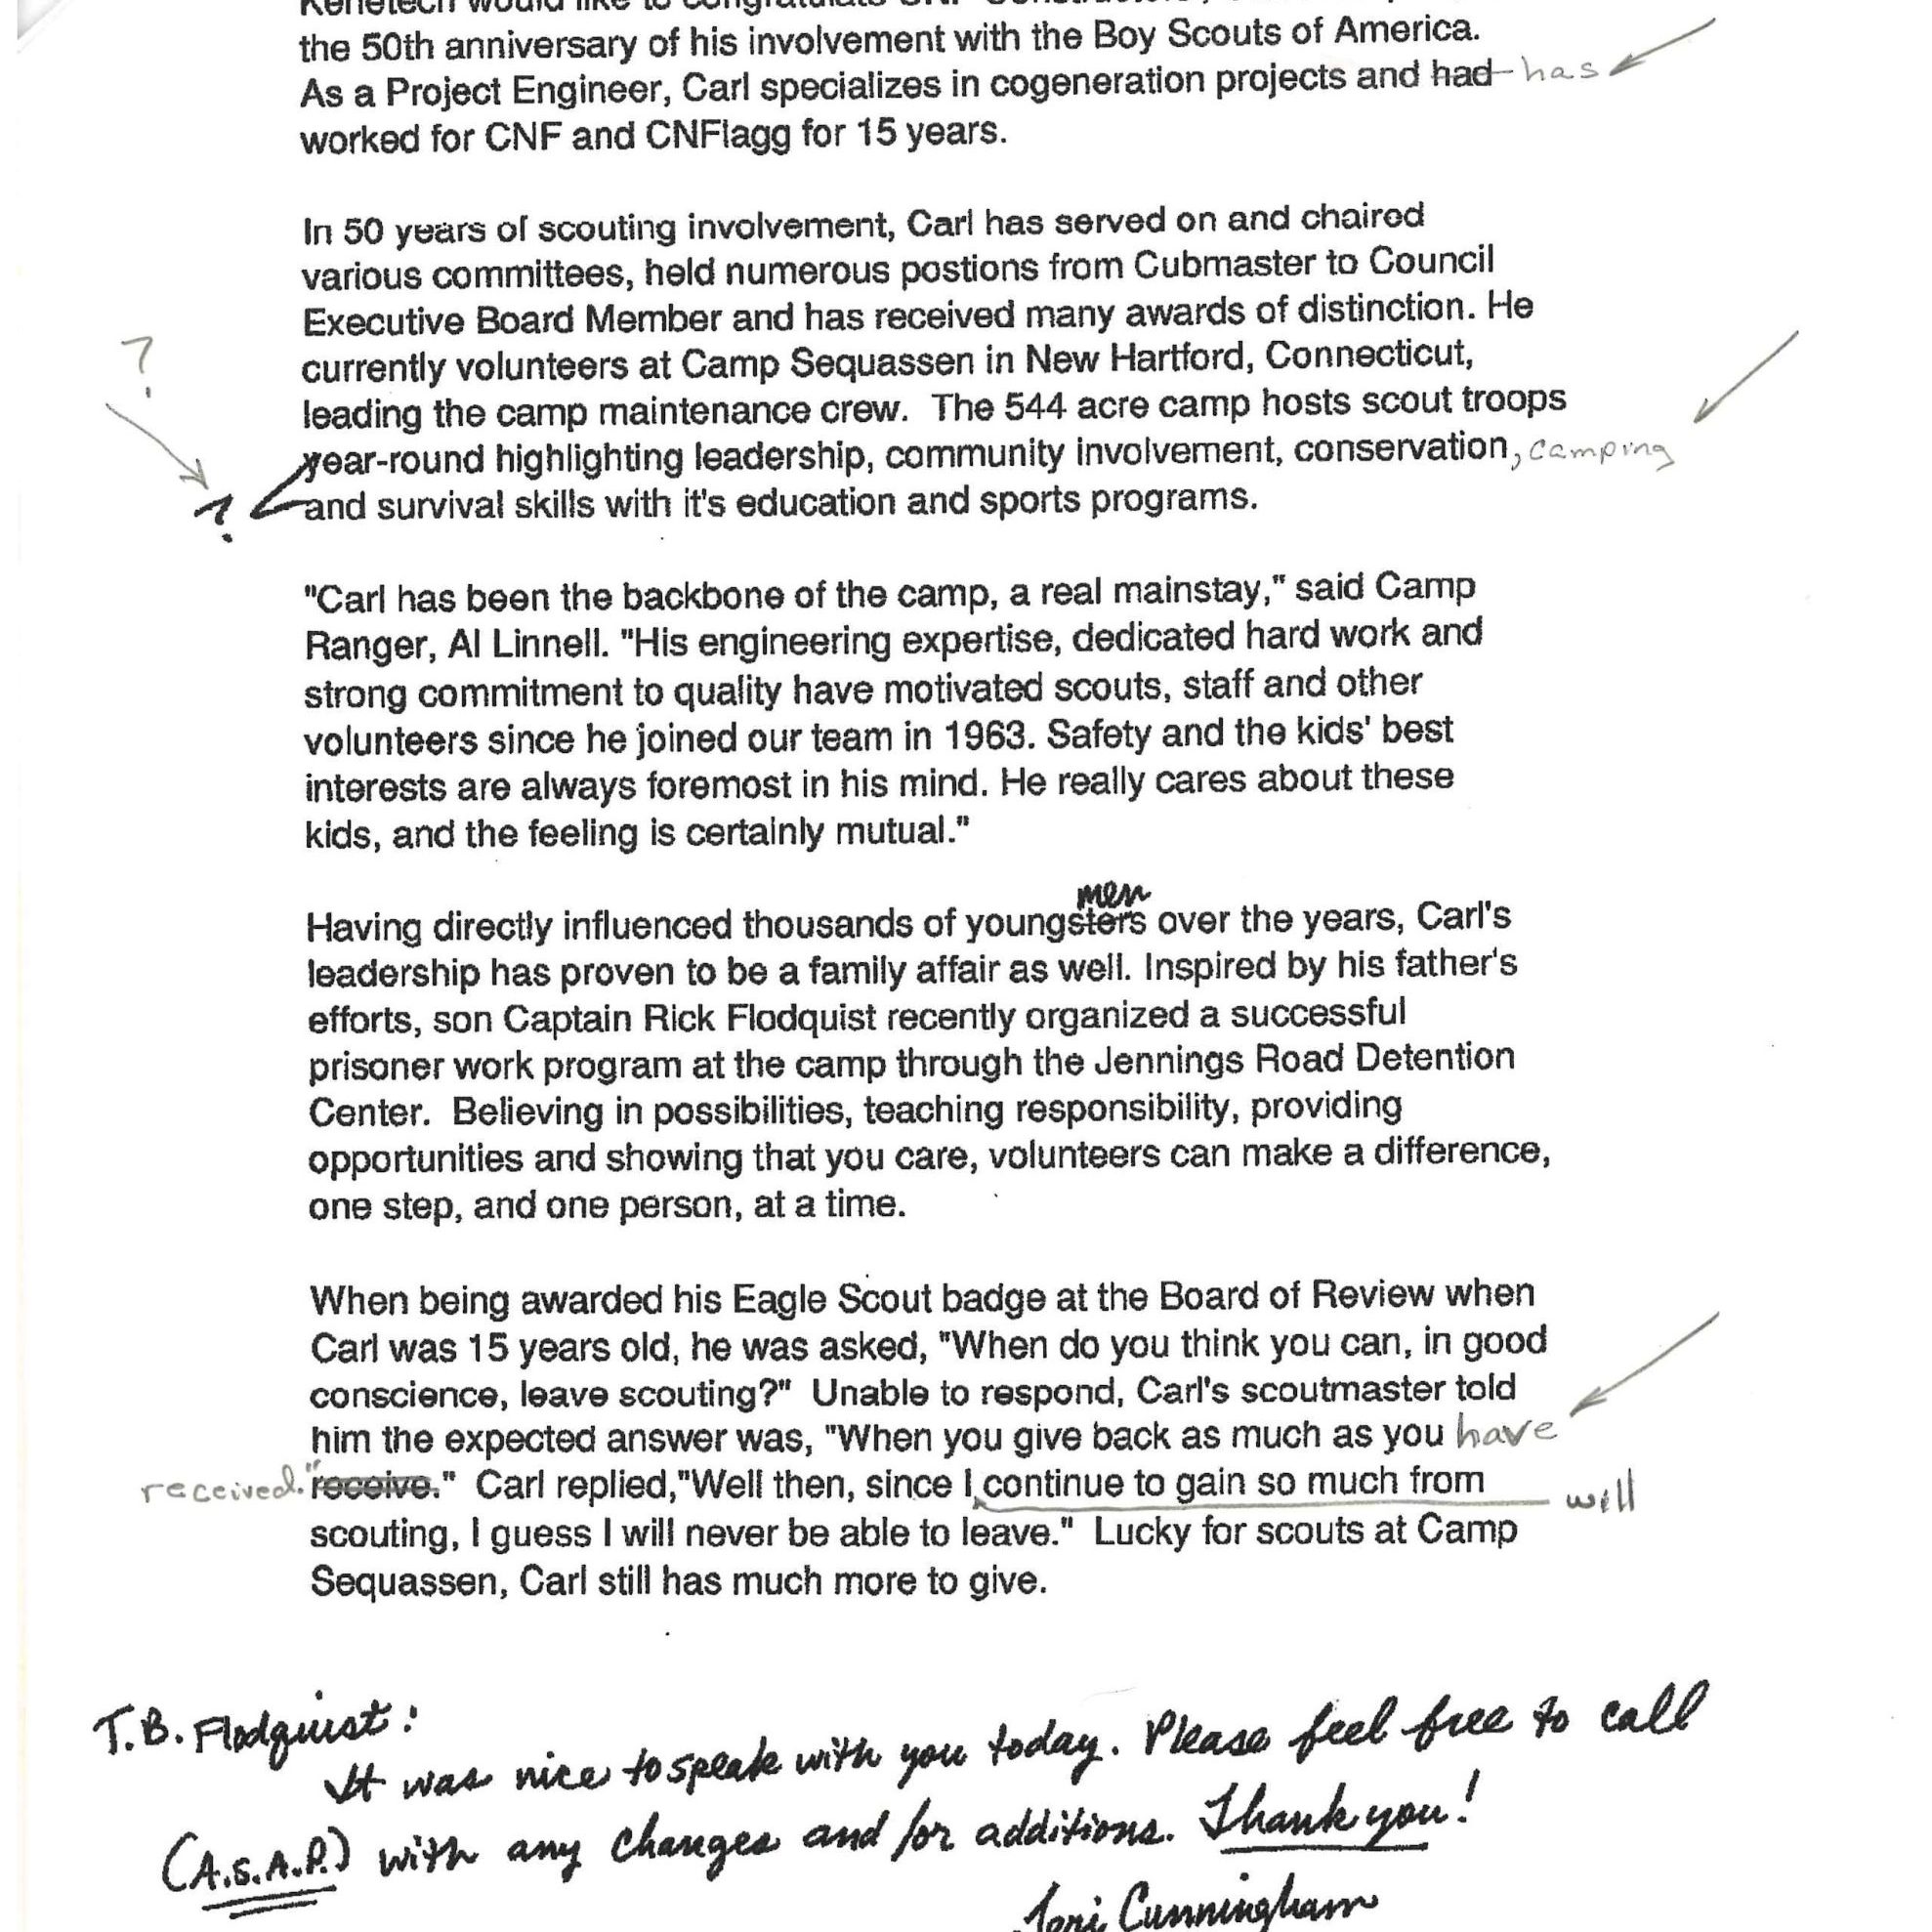 Kenetech would like to congratulate CNF Constructors,
the 50th anniversary of his involvement with the Boy Scouts of America.
As a Project Engineer, Carl specializes in cogeneration projects and had has
worked for CNF and CNFlagg for 15 years.
In 50 years of scouting involvement, Carl has served on and chaired
various committees, held numerous postions from Cubmaster to Council
Executive Board Member and has received many awards of distinction. He
?
currently volunteers at Camp Sequassen in New Hartford, Connecticut,
leading the camp maintenance crew. The 544 acre camp hosts scout troops
year-round highlighting leadership, community involvement, conservation, camping
? and survival skills with it's education and sports programs.
"Carl has been the backbone of the camp, a real mainstay," said Camp
Ranger, Al Linnell. "His engineering expertise, dedicated hard work and
strong commitment to quality have motivated scouts, staff and other
volunteers since he joined our team in 1963. Safety and the kids' best
interests are always foremost in his mind. He really cares about these
kids, and the feeling is certainly mutual."
men
Having directly influenced thousands of youngsters over the years, Carl's
leadership has proven to be a family affair as well. Inspired by his father's
efforts, son Captain Rick Flodquist recently organized a successful
prisoner work program at the camp through the Jennings Road Detention
Center. Believing in possibilities, teaching responsibility, providing
opportunities and showing that you care, volunteers can make a difference,
one step, and one person, at a time.
When being awarded his Eagle Scout badge at the Board of Review when
Carl was 15 years old, he was asked, "When do you think you can, in good
conscience, leave scouting?" Unable to respond, Carl's scoutmaster told
him the expected answer was, "When you give back as much as you have
received." receive." Carl replied,"Well then, since I continue to gain so much from will
scouting, I guess I will never be able to leave." Lucky for scouts at Camp
Sequassen, Carl still has much more to give.
T.B. Flodquist:
It was nice to speak with you today. Please feel free to call
(A.S.A.P.) with any changes and/or additions. Thank you!
Tori Cunningham